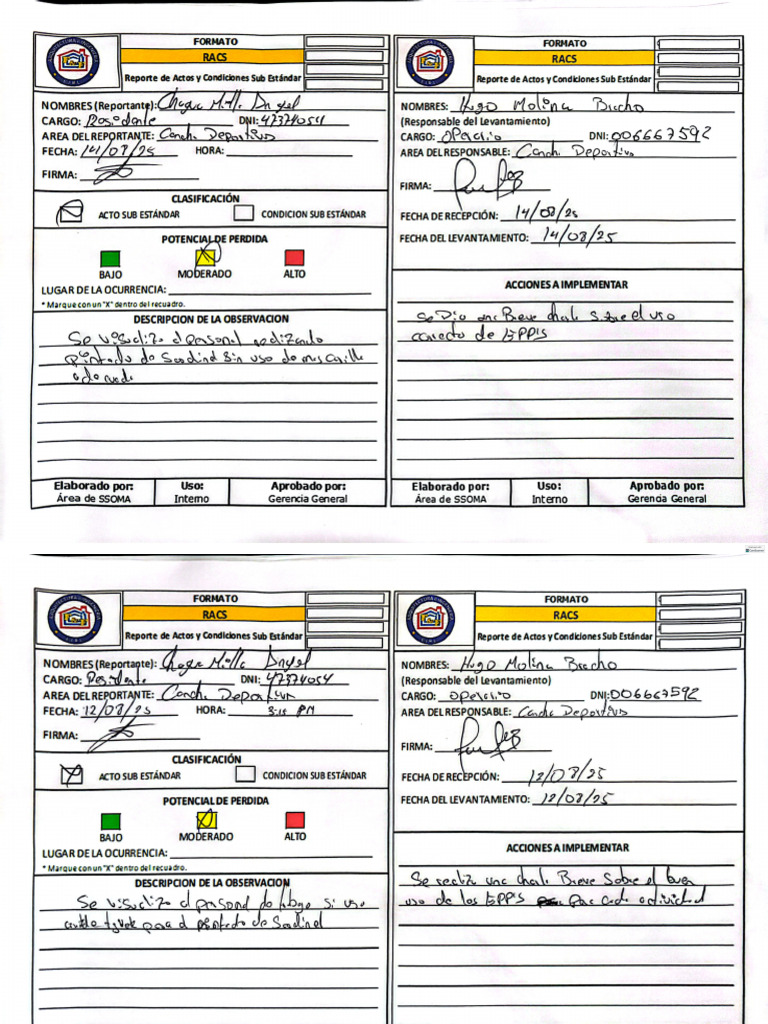 FORMATO
RACS
Reporte de Actos y Condiciones Sub Estándar
NOMBRES (Reportante): Ángel
CARGO: Residente DNI: 47374054
AREA DEL REPORTANTE: Cancha Deportiva
FECHA: 14/08/25 HORA:
FIRMA:
CLASIFICACIÓN
ACTO SUB ESTÁNDAR CONDICION SUB ESTÁNDAR
POTENCIAL DE PERDIDA
BAJO MODERADO ALTO
LUGAR DE LA OCURRENCIA:
* Marque con un "X" dentro del recuadro.
DESCRIPCION DE LA OBSERVACION
Se visualizo al personal realizando
pintado de sin uso de mascarilla
Elaborado por: Uso: Aprobado por:
Área de SSOMA Interno Gerencia General
FORMATO
RACS
Reporte de Actos y Condiciones Sub Estándar
NOMBRES: Hugo Molina Bracho
(Responsable del Levantamiento)
CARGO: operario DNI: 006667592
AREA DEL RESPONSABLE: Cancha Deportiva
FIRMA:
FECHA DE RECEPCIÓN: 14/08/25
FECHA DEL LEVANTAMIENTO: 14/08/25
ACCIONES A IMPLEMENTAR
Se Dio una Breve charla sobre el uso
correcto de EPP's
Elaborado por: Uso: Aprobado por:
Área de SSOMA Interno Gerencia General
FORMATO
RACS
Reporte de Actos y Condiciones Sub Estándar
NOMBRES (Reportante): Angel
CARGO: Residente DNI: 47374054
AREA DEL REPORTANTE: Cancha Deportiva
FECHA: 12/08/25 HORA: 3:15 PM
FIRMA:
CLASIFICACIÓN
ACTO SUB ESTÁNDAR CONDICION SUB ESTÁNDAR
POTENCIAL DE PERDIDA
BAJO MODERADO ALTO
LUGAR DE LA OCURRENCIA:
* Marque con un "X" dentro del recuadro.
DESCRIPCION DE LA OBSERVACION
Se visualizo al personal
para el pintado de
FORMATO
RACS
Reporte de Actos y Condiciones Sub Estándar
NOMBRES: Hugo Molina Bracho
(Responsable del Levantamiento)
CARGO: operario DNI: 006667592
AREA DEL RESPONSABLE: Cancha Deportiva
FIRMA:
FECHA DE RECEPCIÓN: 12/08/25
FECHA DEL LEVANTAMIENTO: 12/08/25
ACCIONES A IMPLEMENTAR
Se realizo una charla Breve sobre el buen
uso de los EPP's para cada actividad